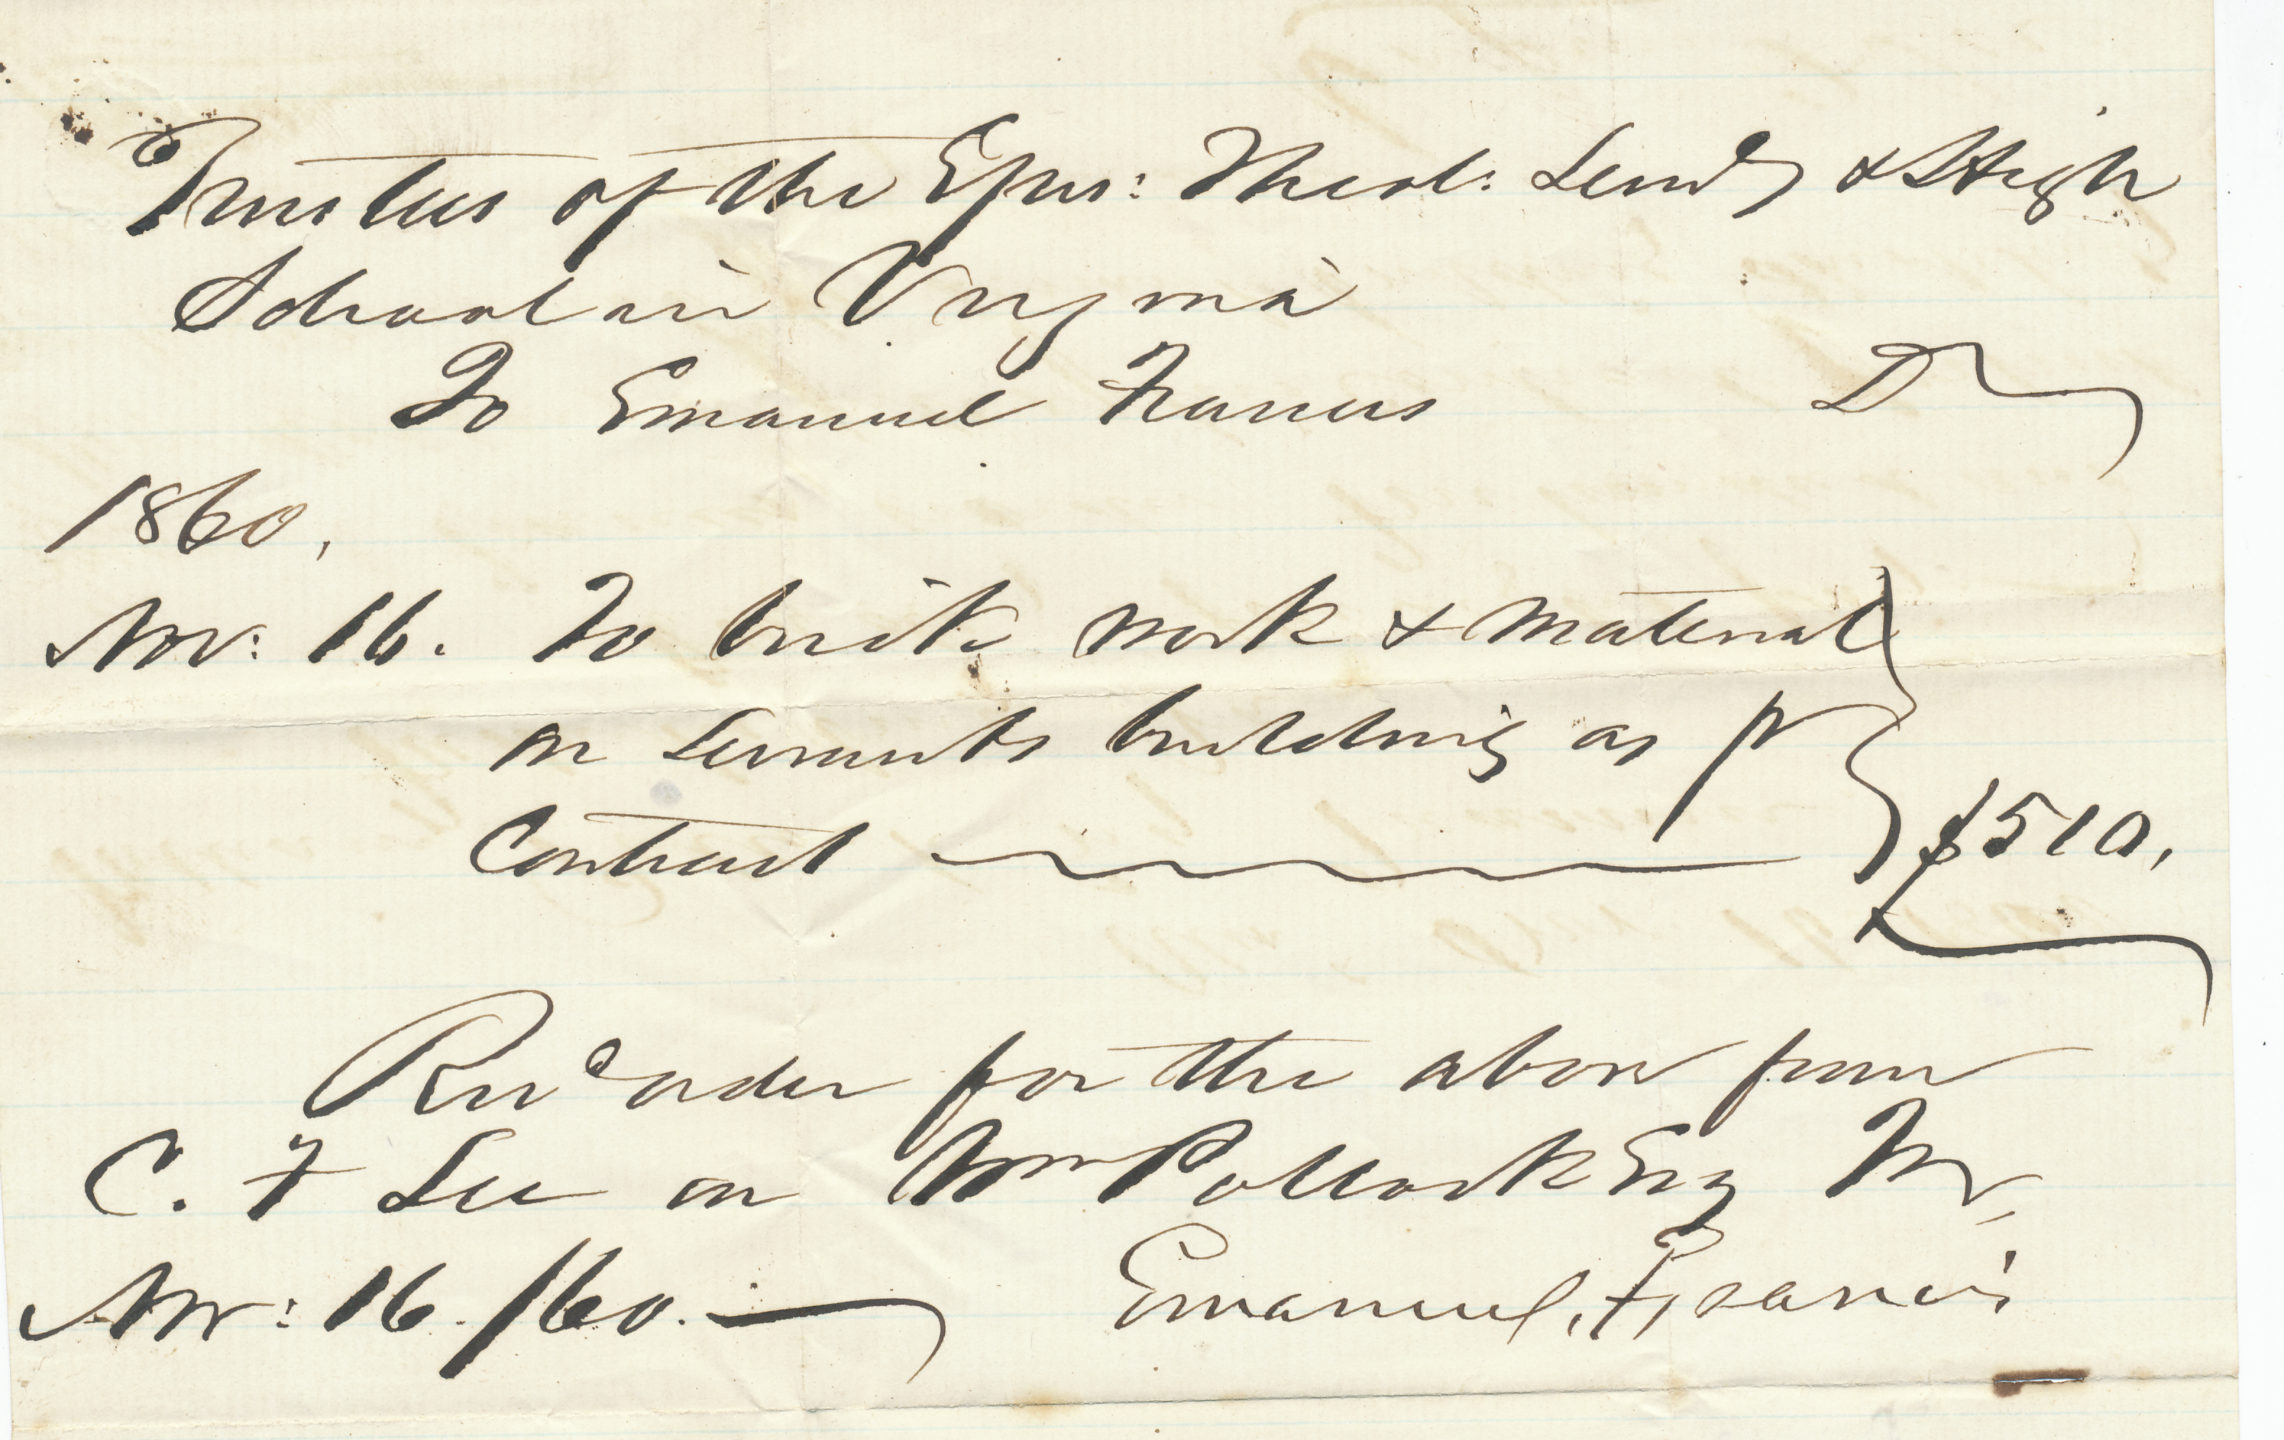 Trustees of the Epis: Theol: Semy & High
School in Virginia
To Emanuel Francis Dr
1860.
Nov: 16. To brick work & material
on servants building as pr
Contract $510.
Recd order for the above from
C. F Lee on Wm Pollock Esq Tr,
Nov: 16. /60. Emanuel, Francis